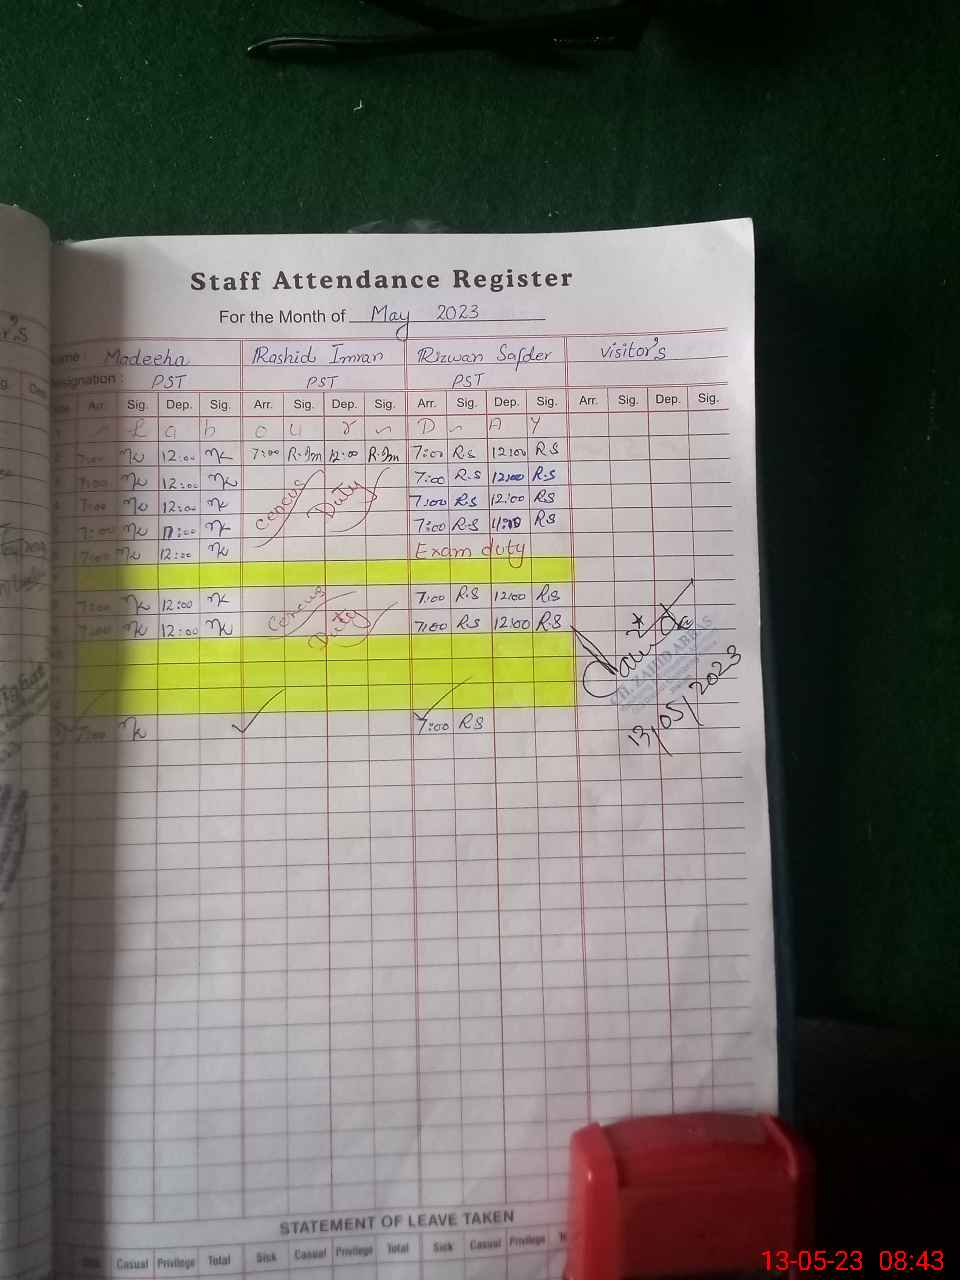 Staff Attendance Register
For the Month of May 2023
Name: Madeeha Rashid Imran Rizwan Safder Visitor's
Designation: PST PST PST
Arr. Sig. Dep. Sig. Arr. Sig. Dep. Sig. Arr. Sig. Dep. Sig. Arr. Sig. Dep. Sig.
L a b o u r D A Y
7:00 12:00 7:00 R.Im 12:00 R.Im 7:00 R.S 12:00 R.S
7:00 12:00 Cencus Duty 7:00 R.S 12:00 R.S
7:00 12:00 7:00 R.S 12:00 RS
7:00 11:00 7:00 R.S RS
7:00 12:00 Exam duty
7:00 12:00 Cencus Duty 7:00 R.S 12:00 R.S
7:00 12:00 7:00 RS 12:00 R.S
CH. ZAHID
13/05/2023
7:00 7:00 RS
STATEMENT OF LEAVE TAKEN
Casual Privilege Total Sick Casual Privilege Total Sick Casual Privilege
13-05-23 08:43